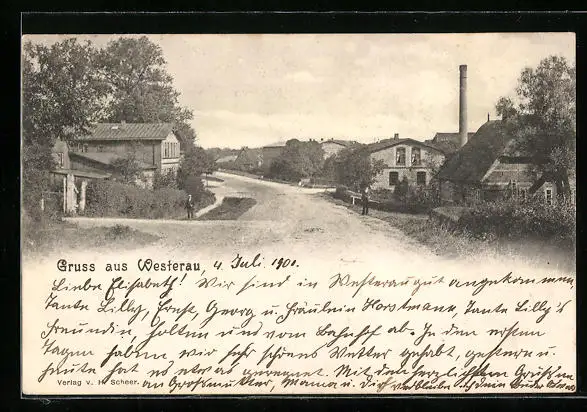 Gruss aus Westerau, 4. Juli 1901.
Liebe Elisabeth! Wir sind in Westerau gut angekommen
Tante Lilly, Ernst, Georg u. Fräulein Horstmann, Tante Lilly's
Freundin, holten uns vom Bahnhof ab. In den ersten
Tagen haben wir sehr schönes Wetter gehabt, gestern u.
heute hat es etwas geregnet. Mit den herzlichsten Grüssen
an Grossmutter, Mama u. Dich verbleibe ich Dein Bruder
Verlag v. H. Scheer.